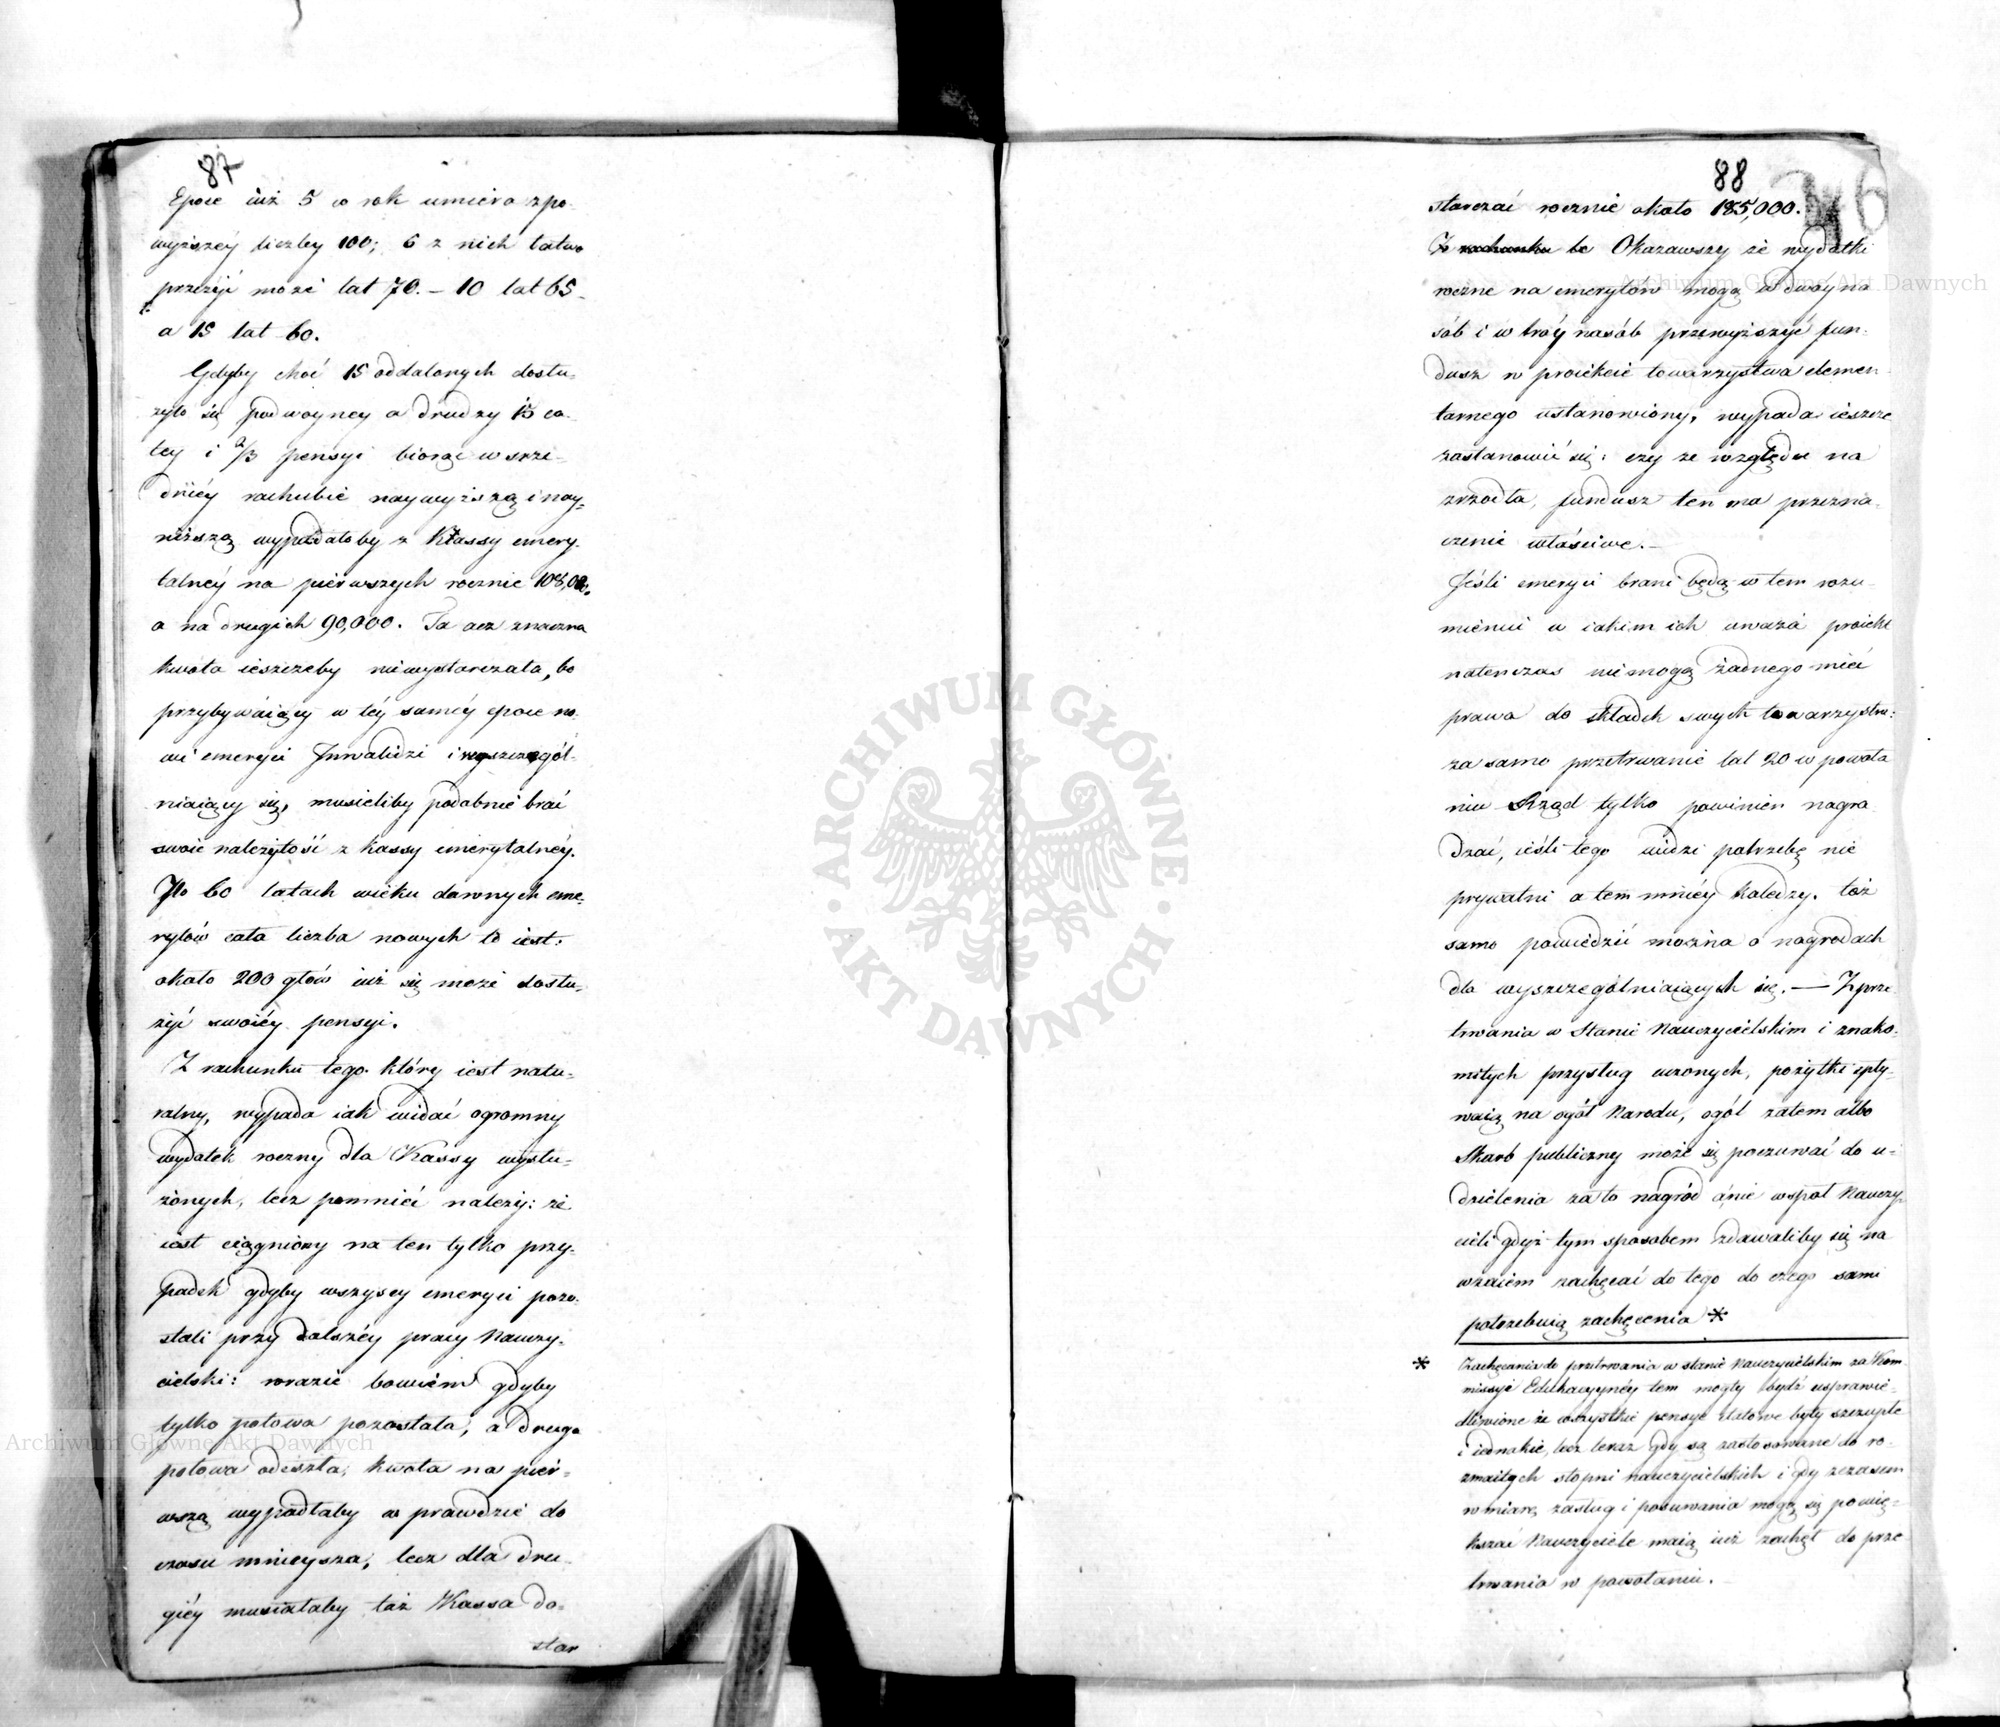 87
Epoce iuż 5 w rok umiera zpo-
wyższey liczby 100; 6 z nich łatwo
przeżyć może lat 70. – 10 lat 65 –
a 15 lat 60.
Gdyby choć 15 oddalonych dosłu-
żyło się podwoyney a drudzy 15 ca-
łey i 2/3 pensyi biorąc w srze-
dniéy rachubie naywyższą i nay-
niższą wypadałoby z Kassy emery-
talnéy na pierwszych rocznie 108,000.
a na drugich 90,000. Ta acz znaczna
kwota ieszczeby niewystarczała, bo
przybywaiący w téy saméy epoce no-
wi emeryci Inwalidzi i wyszczegól-
niaiący się, musieliby podobnie brać
swoie należytość z kassy emerytalnéy.
Po 60 latach wieku dawnych eme-
rytów cała liczba nowych to iest:
około 200 głów iuż się może dosłu-
żyć swoiéy pensyi.
Z rachunku tego który iest natu-
ralny, wypada iak widać ogromny
wydatek roczny dla Kassy wysłu-
żonych, lecz pomnieć należy: że
iest ciągniony na ten tylko przy-
padek gdyby wszyscy emeryci pozo-
stali przy dalszéy pracy Nauczy-
cielski: w razie bowiem gdyby
tylko połowa pozostała, a druga
połowa odeszła, kwota na pier-
wszą wypadłaby w prawdzie do
czasu mnieysza, lecz dla dru-
giéy musiałaby taż Kassa do-
star
88
starczać rocznie około 185,000.
Z rachunku te Okazawszy że wydatki
roczne na emerytów mogą w dwóy na
sób i w tróy nasób przewyższyć fun-
dusz w proiekcie towarzystwa elemen-
tarnego ustanowiony, wypada ieszcze
zastanowić się: czy ze względu na
zrzodła, fundusz ten ma przezna-
czenie właściwe. –
Jeśli emeryci brani będą w tem rozu-
mieniu w iakim ich uważa proiekt
natenczas nie mogą żadnego mieć
prawa do składek swych towarzystw:
za samo przetrwanie lat 20 w powoła
niu Rząd tylko powinien nagra
dzać, ieśli tego widzi potrzebę nie
prywatni a tem mniéy koledzy. toż
samo powiedzić można o nagrodach
dla wyszczególniaiących się. — Z prze
trwania w Stanie Nauczycielskim i znako-
mitych przysług uczonych, pożytki spły-
waią na ogół Narodu, ogół zatem albo
Skarb publiczny może się poczuwać do u-
dzielenia za to nagród a nie wspoł Nauczy
cieli gdyż tym sposobem zdawaliby się na
wzaiem zachęcać do tego do czego sami
potrzebuią zachęcenia *
* Zachęcania do przetrwania w stanie Nauczycielskim za Kom-
missyi Edukacyynéy tem mogły bydź usprawie-
dliwione że wszystkie pensye stałowe były szczupłe
i iednakie, lecz teraz gdy są zastosowane do ro-
zmaitych stopni nauczycielskich i gdy z czasem
w miarę zasług i posuwania mogą się powię-
kszać Nauczyciele maią iuż zachęt do prze
trwania w powołaniu.
ARCHIWUM GŁÓWNE AKT DAWNYCH
Archiwum Główne Akt Dawnych
Archiwum Główne Akt Dawnych